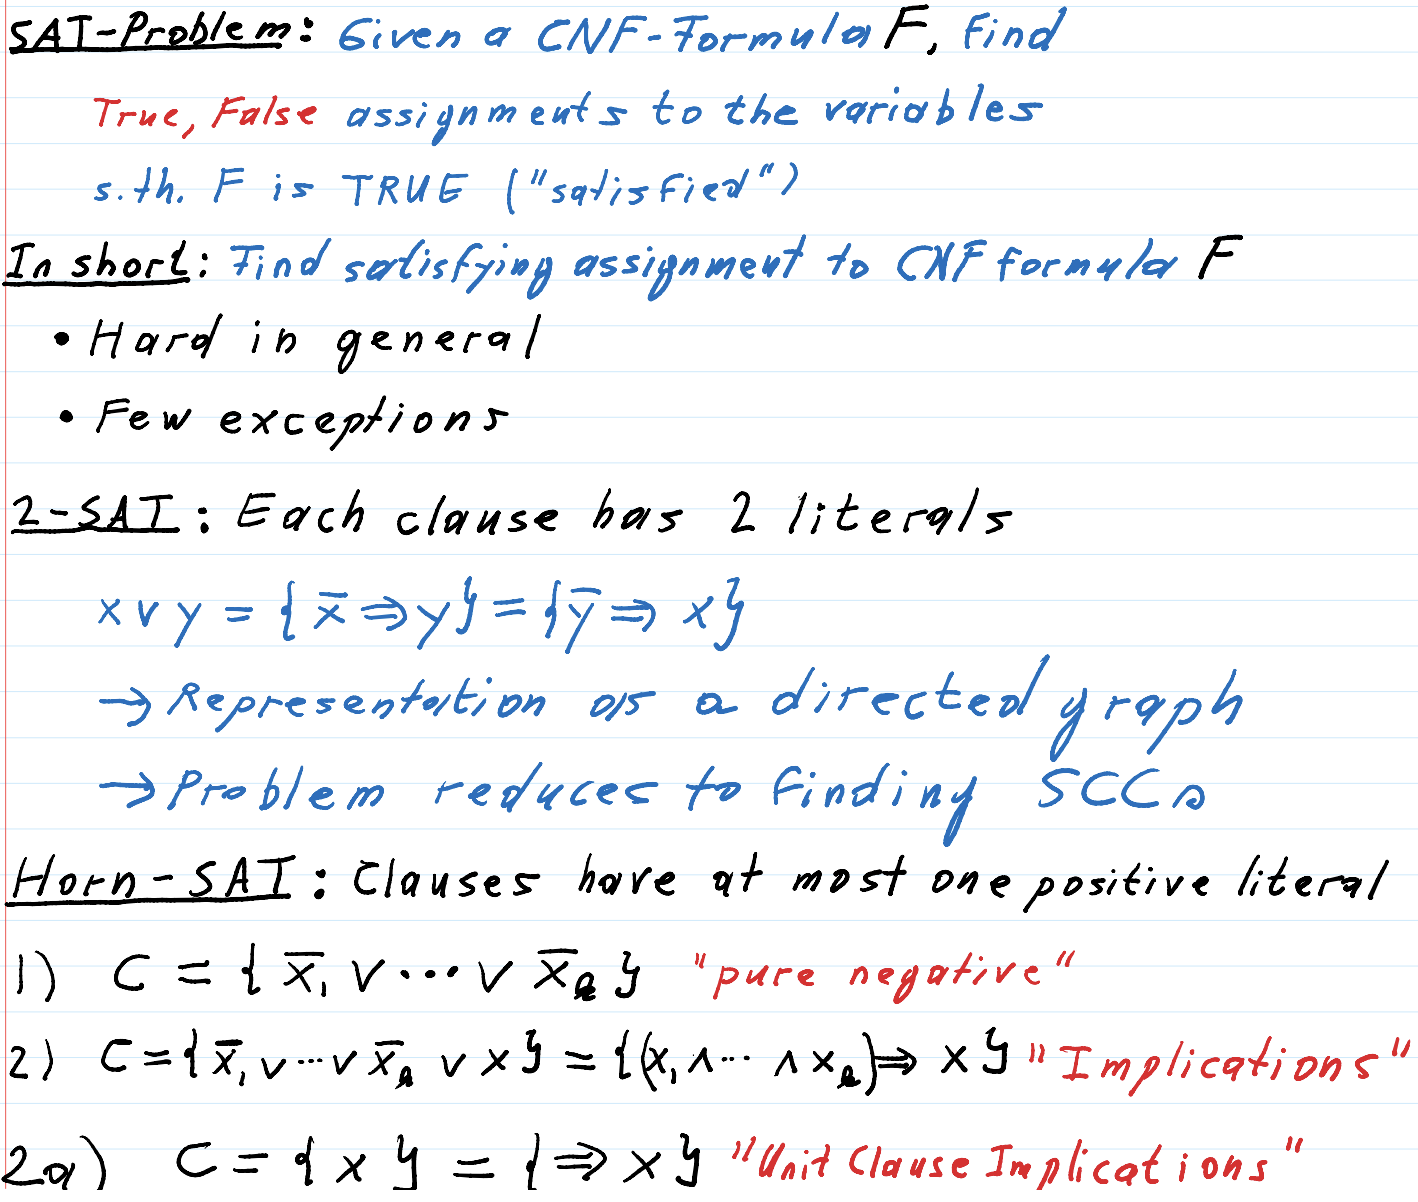 SAT-Problem: Given a CNF-Formula F, Find
True, False assignments to the variables
s.th. F is TRUE ("satisfied")
In short: Find satisfying assignment to CNF formula F
• Hard in general
• Few exceptions
2-SAT: Each clause has 2 literals
x ∨ y = { x̄ ⇒ y } = { ȳ ⇒ x }
→ Representation as a directed graph
→ Problem reduces to finding SCCs
Horn-SAT: Clauses have at most one positive literal
1) C = { x̄₁ ∨ ··· ∨ x̄ₖ } "pure negative"
2) C = { x̄₁ ∨ ··· ∨ x̄ₖ ∨ x } = { (x₁ ∧ ·· ∧ xₖ) ⇒ x } "Implications"
2a) C = { x } = { ⇒ x } "Unit Clause Implications"